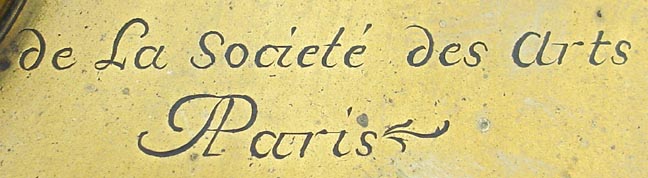 de La Societé des Arts
Paris